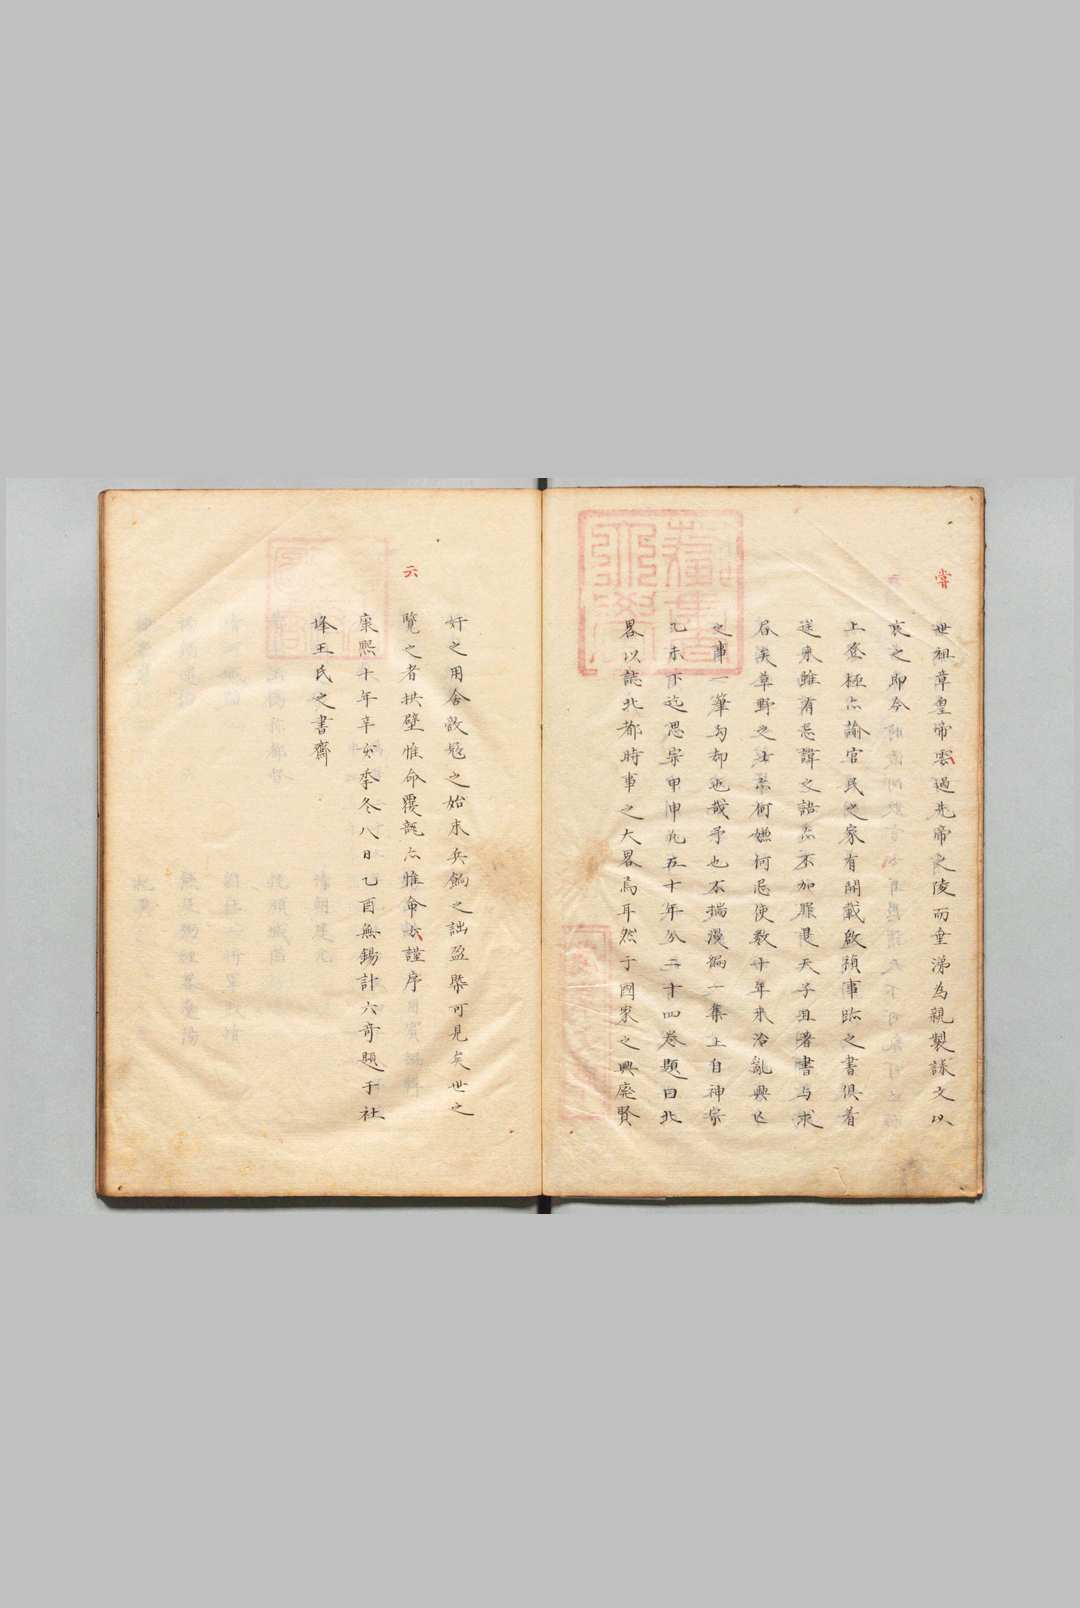 嘗
世祖章皇帝嘗過先帝之陵而垂涕為親製誄文以
哀之即今
上登極亦諭官民之家有開載啟禎事跡之書俱着
送來雖有忌諱之語亦不加罪是天子且著書与求
之事一筆勾却也哉予也不揣漫編一集上自神宗
乙未下迄思宗甲申凡五十年分二十四卷題曰北
畧以誌北都時事之大畧焉耳然于國家之興廢賢
奸之用舍敵寇之始末兵餉之詘盈槩可見矣世之
六
覽之者拱璧惟命覆瓿亦惟命云謹序
康熙十年辛亥季冬八日乙酉無錫計六奇題于社
埄王氏之書齋